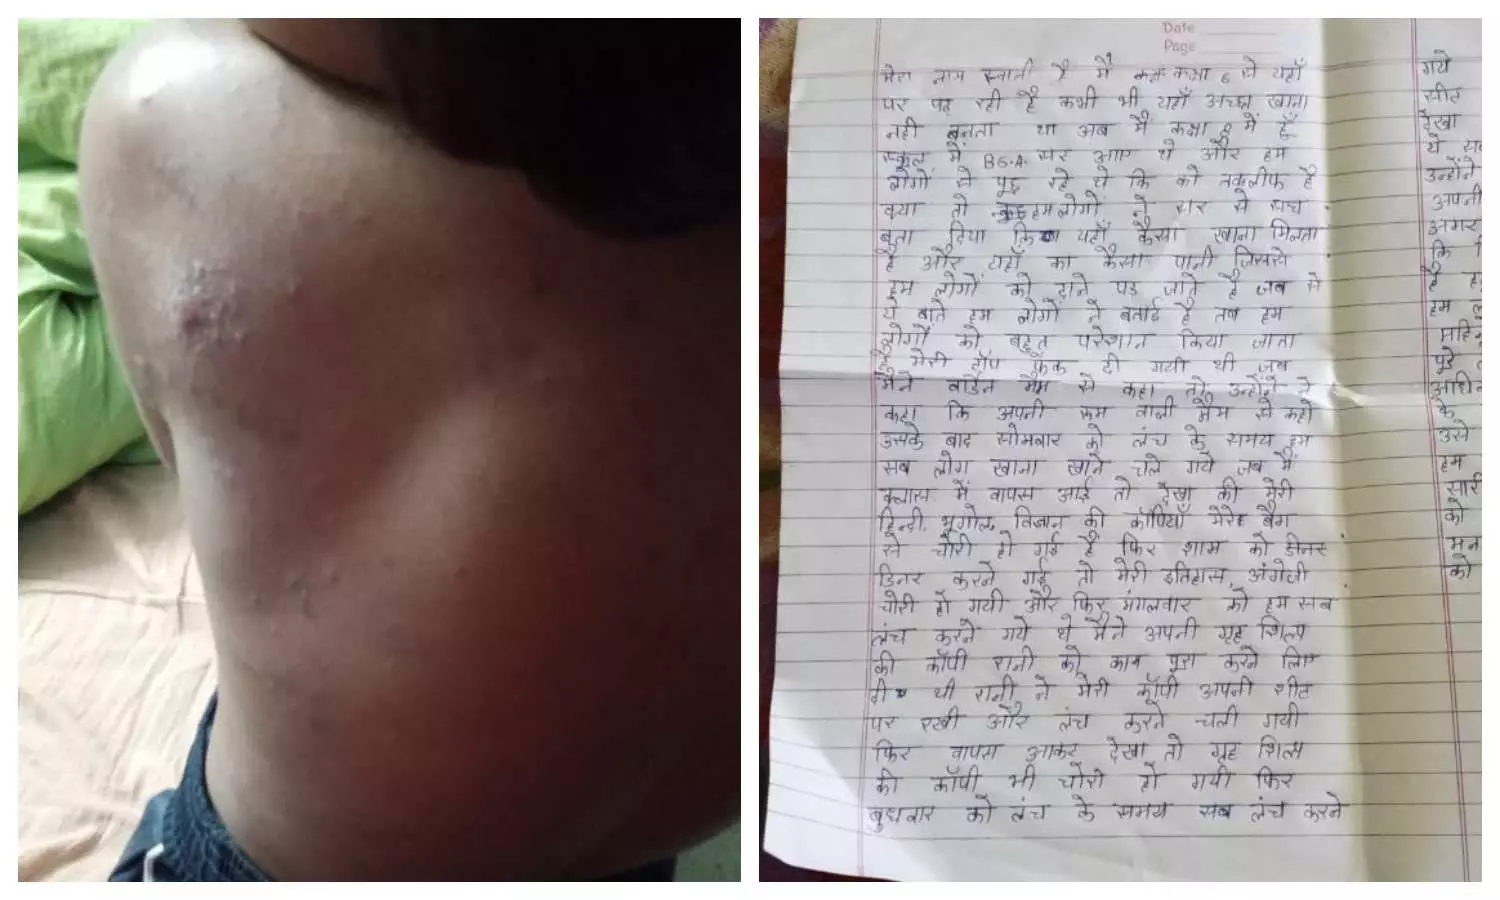 Date
Page
मेरा नाम स्वाती है मैं कक्षा 6 से यहाँ
पर पढ़ रही है कभी भी यहाँ अच्छा खाना
नही बनता था अब मैं कक्षा 8 में हूँ
स्कूल में B.S.A. सर आए थे और हम
लोगों से पूछ रहे थे कि को तकलीफ है
क्या तो हम लोगों ने सर से सच
बता दिया कि यहाँ कैसा खाना मिलता
है और यहाँ का कैसा पानी जिससे
हम लोगों को दाने पड़ जाते है जब से
ये बाते हम लोगों ने बताई है तब हम
लोगों को बहुत परेशान किया जाता
है मेरी टॉप फेंक दी गयी थी जब
मैंने वार्डेन मैम से कहा तो उन्होंने ने
कहा कि अपनी रूम वाली मैम से कहो
उसके बाद सोमवार को लंच के समय हम
सब लोग खाना खाने चले गये जब मैं
क्लास में वापस आई तो देखा की मेरी
हिन्दी, भूगोल, विज्ञान की कॉपियाँ मेरे बैग
से चोरी हो गई है फिर शाम को
डिनर करने गई तो मेरी इतिहास, अंग्रेजी
चोरी हो गयी और फिर मंगलवार को हम सब
लंच करने गये थे मैंने अपनी गृह शिल्प
की कॉपी रानी को काम पूरा करने लिए
दी थी रानी ने मेरी कॉपी अपनी शीट
पर रखी और लंच करने चली गयी
फिर वापस आकर देखा तो गृह शिल्प
की कॉपी भी चोरी हो गयी फिर
बुधवार को लंच के समय सब लंच करने
गये
शीट
देखा
ये
उन्होंने
अपनी
अगर
कि
है
हम
पूरे
के
उसे
हम
सारी
को
मन
को